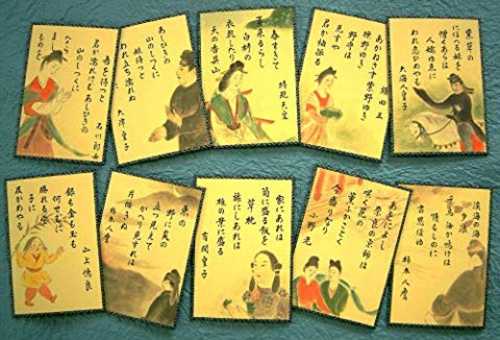 紫草の
にほへる妹を
憎くあらば
人嬬ゆゑに
われ恋ひめやも
大海人皇子
あかねさす紫野ゆき
標野ゆき
野守は
見ずや
君が袖振る
額田王
春すぎて
夏来るらし
白妙の
衣乾したり
天の香具山
持統天皇
あしひきの
山のしつくに
妹待つと
われ立ち濡れぬ
大津皇子
吾を待つと
君が濡れけむあしひきの
山のしつくに
ものを
石川郎女
淡海の海
夕浪
千鳥汝が鳴けば
古思ほゆ
柿本人麿
あをによし
奈良の京師は
咲く花の
薫ふがごとく
今盛りなり
小野老
家にあれは
笥に盛る飯を
草枕
旅にしあれは
椎の葉に盛る
有間皇子
東の
野に炎の
立つ見えて
かへり見すれは
月傾きぬ
柿本人麿
銀も金も玉も
何せむに
勝れる宝
子に
及かめやも
山上憶良